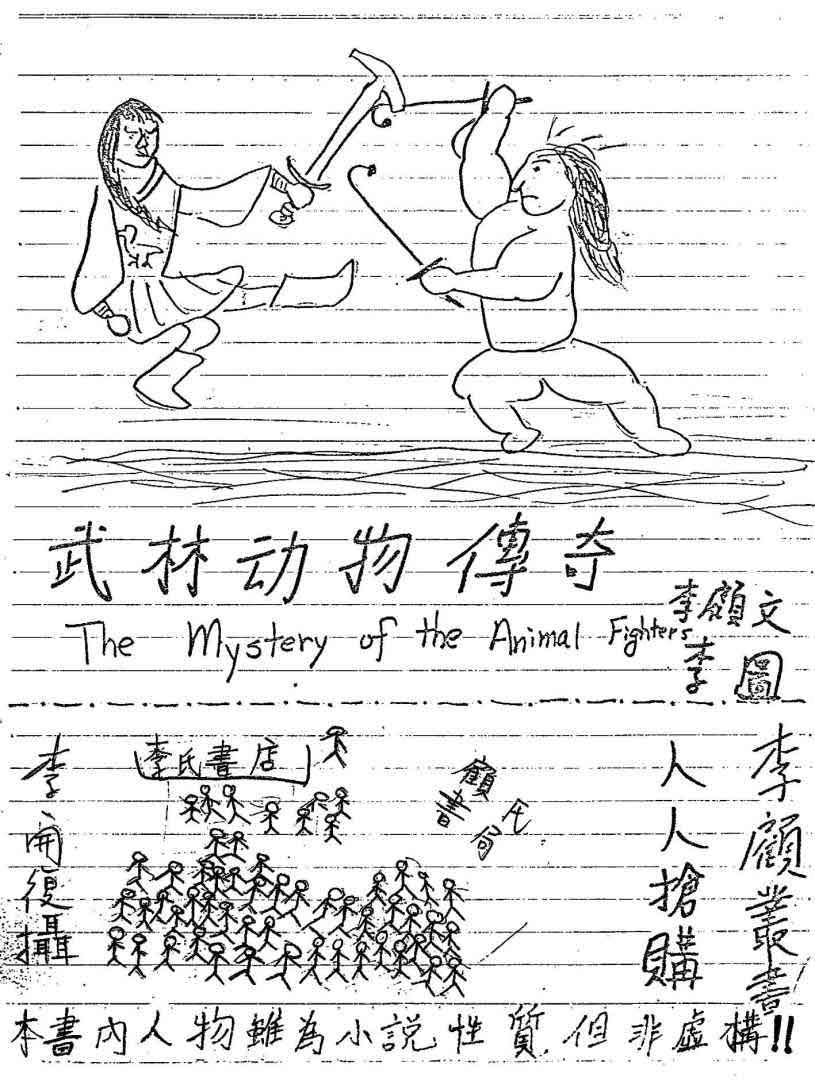 武林动物傳奇
The Mystery of the Animal Fighters
李顧文
李圖
李氏書店
顧氏書局
李開復攝
人人搶購
李顧叢書
本書內人物雖為小説性質但非虛構!!